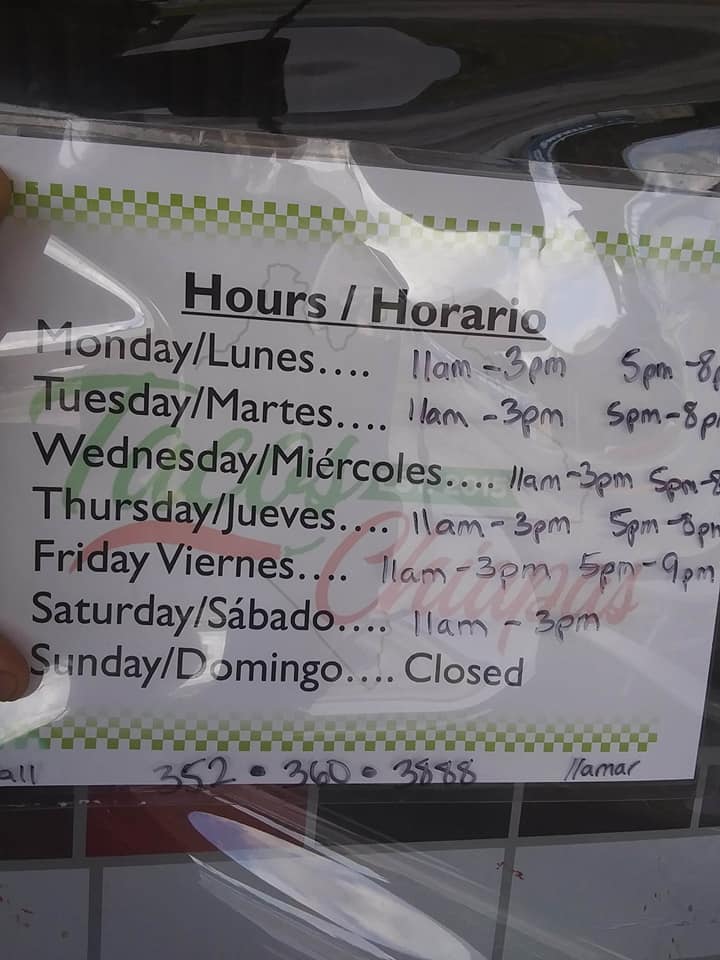 Hours / Horario
Monday/Lunes.... 11am - 3pm 5pm - 8p
Tuesday/Martes.... 11am - 3pm 5pm - 8pm
Wednesday/Miércoles.... 11am - 3pm 5pm - 8
Thursday/Jueves.... 11am - 3pm 5pm - 8pm
Friday Viernes.... 11am - 3pm 5pm - 9pm
Saturday/Sábado.... 11am - 3pm
Sunday/Domingo.... Closed
Tacos
Chiapas
all 352 • 360 • 3888 llamar